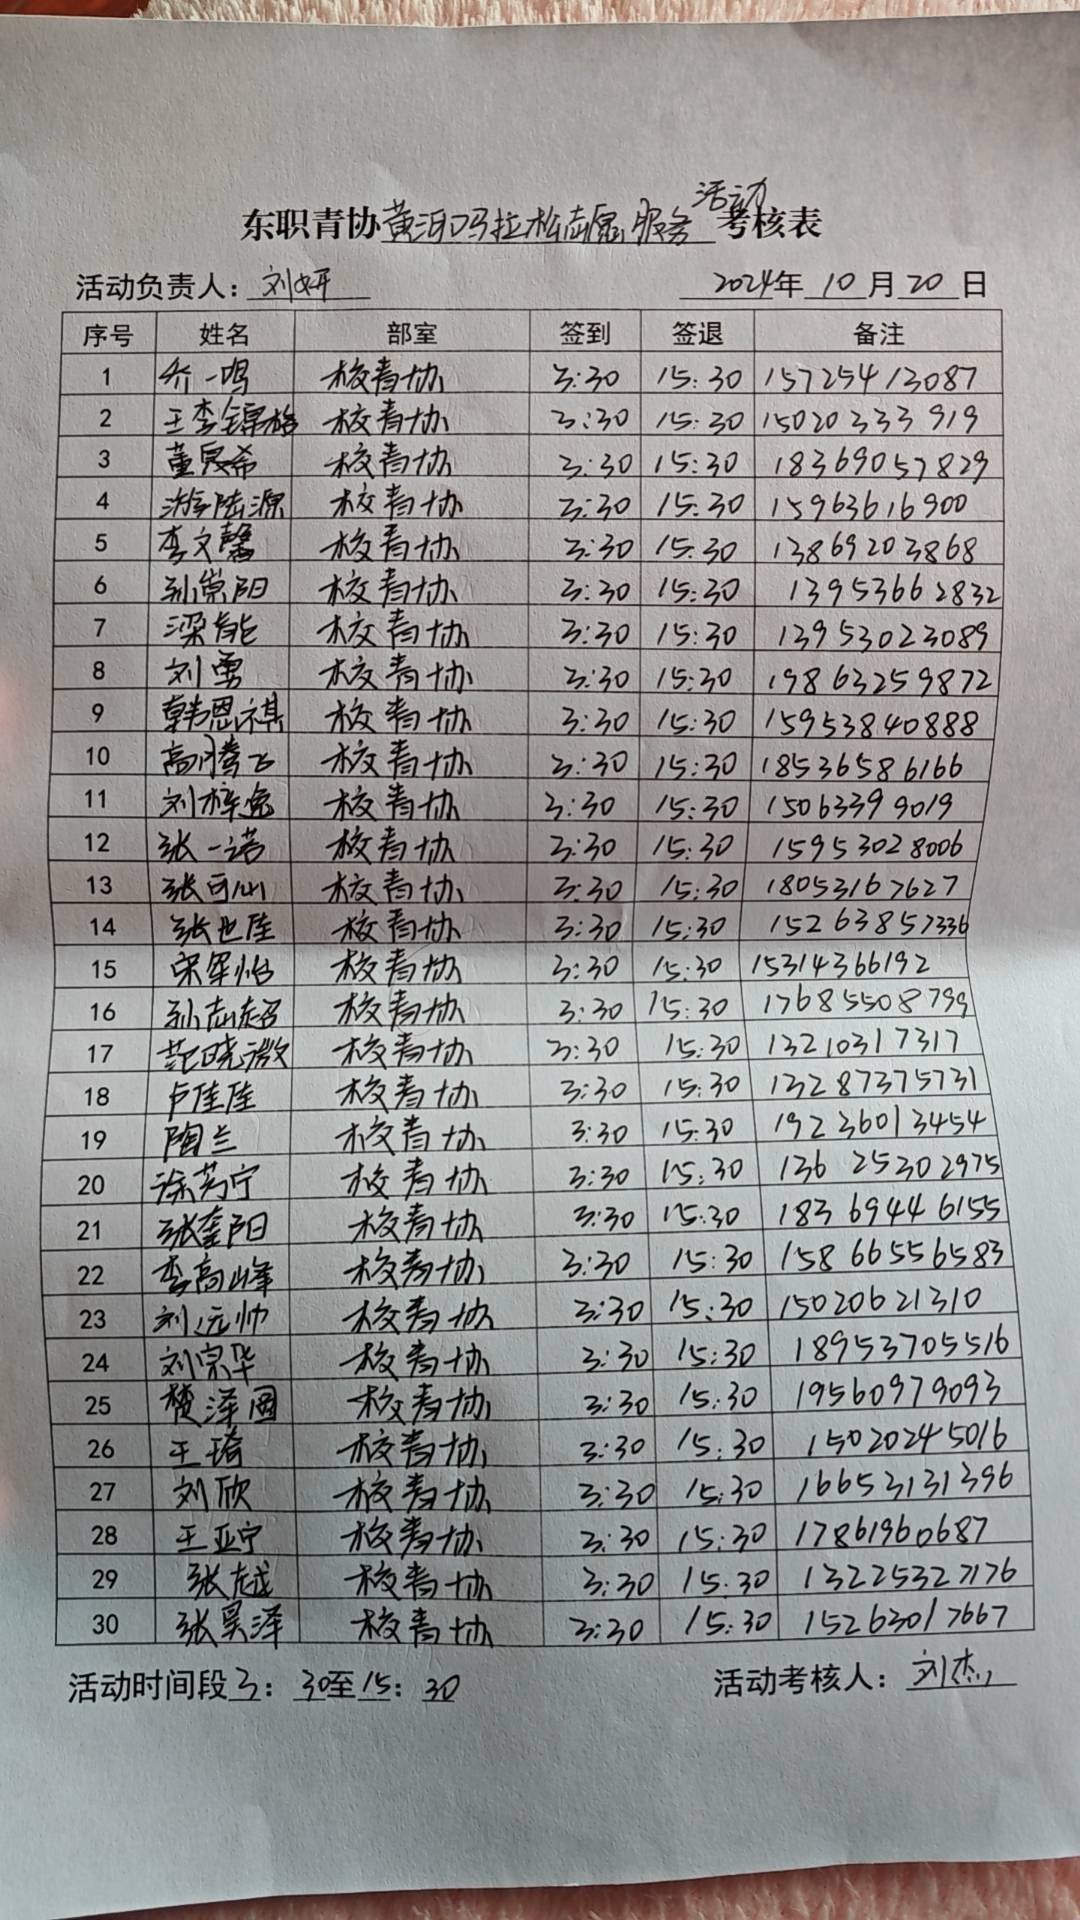 活动
东职青协黄河口马拉松志愿服务考核表
活动负责人：刘妍 2024年 10 月 20 日
序号 姓名 部室 签到 签退 备注
1 乔一鸣 校青协 3:30 15:30 15725413087
2 王李锦格 校青协 3:30 15:30 15020333919
3 董晟希 校青协 3:30 15:30 18369057829
4 游陆源 校青协 3:30 15:30 15963616900
5 李文馨 校青协 3:30 15:30 13869203868
6 孙崇阳 校青协 3:30 15:30 13953662832
7 梁能 校青协 3:30 15:30 13953023089
8 刘勇 校青协 3:30 15:30 19863259872
9 韩恩祺 校青协 3:30 15:30 15953840888
10 高腾飞 校青协 3:30 15:30 18536586166
11 刘梓逸 校青协 3:30 15:30 15063399019
12 张一诺 校青协 3:30 15:30 15953028006
13 张可心 校青协 3:30 15:30 18053167627
14 张世佳 校青协 3:30 15:30 15263857336
15 宋军怡 校青协 3:30 15:30 15314366192
16 孙志超 校青协 3:30 15:30 17685508799
17 范晓漩 校青协 3:30 15:30 13210317317
18 卢佳佳 校青协 3:30 15:30 13287375731
19 陶兰 校青协 3:30 15:30 19236013454
20 涂芮宁 校青协 3:30 15:30 13625302975
21 张奎阳 校青协 3:30 15:30 18369446155
22 李高峰 校青协 3:30 15:30 15866556583
23 刘远帅 校青协 3:30 15:30 15020621310
24 刘宗华 校青协 3:30 15:30 18953705516
25 樊泽国 校青协 3:30 15:30 19560979093
26 王琦 校青协 3:30 15:30 15020245016
27 刘欣 校青协 3:30 15:30 16653131396
28 王亚宁 校青协 3:30 15:30 17861960687
29 张越 校青协 3:30 15:30 13225327176
30 张昊泽 校青协 3:30 15:30 15263017667
活动时间段3：30至15：30 活动考核人：刘杰